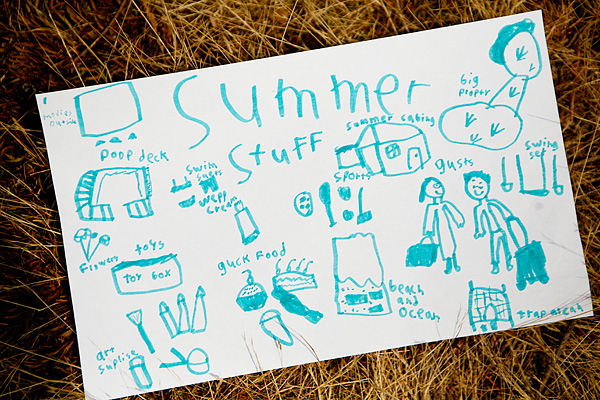 Summer
Stuff
movies
outside
poop deck
swim
suets
wepp
cream
summer cabing
big
proper
swing
set
sports
gusts
flowers
toys
toy box
guck food
beach
and
ocean
art
suplise